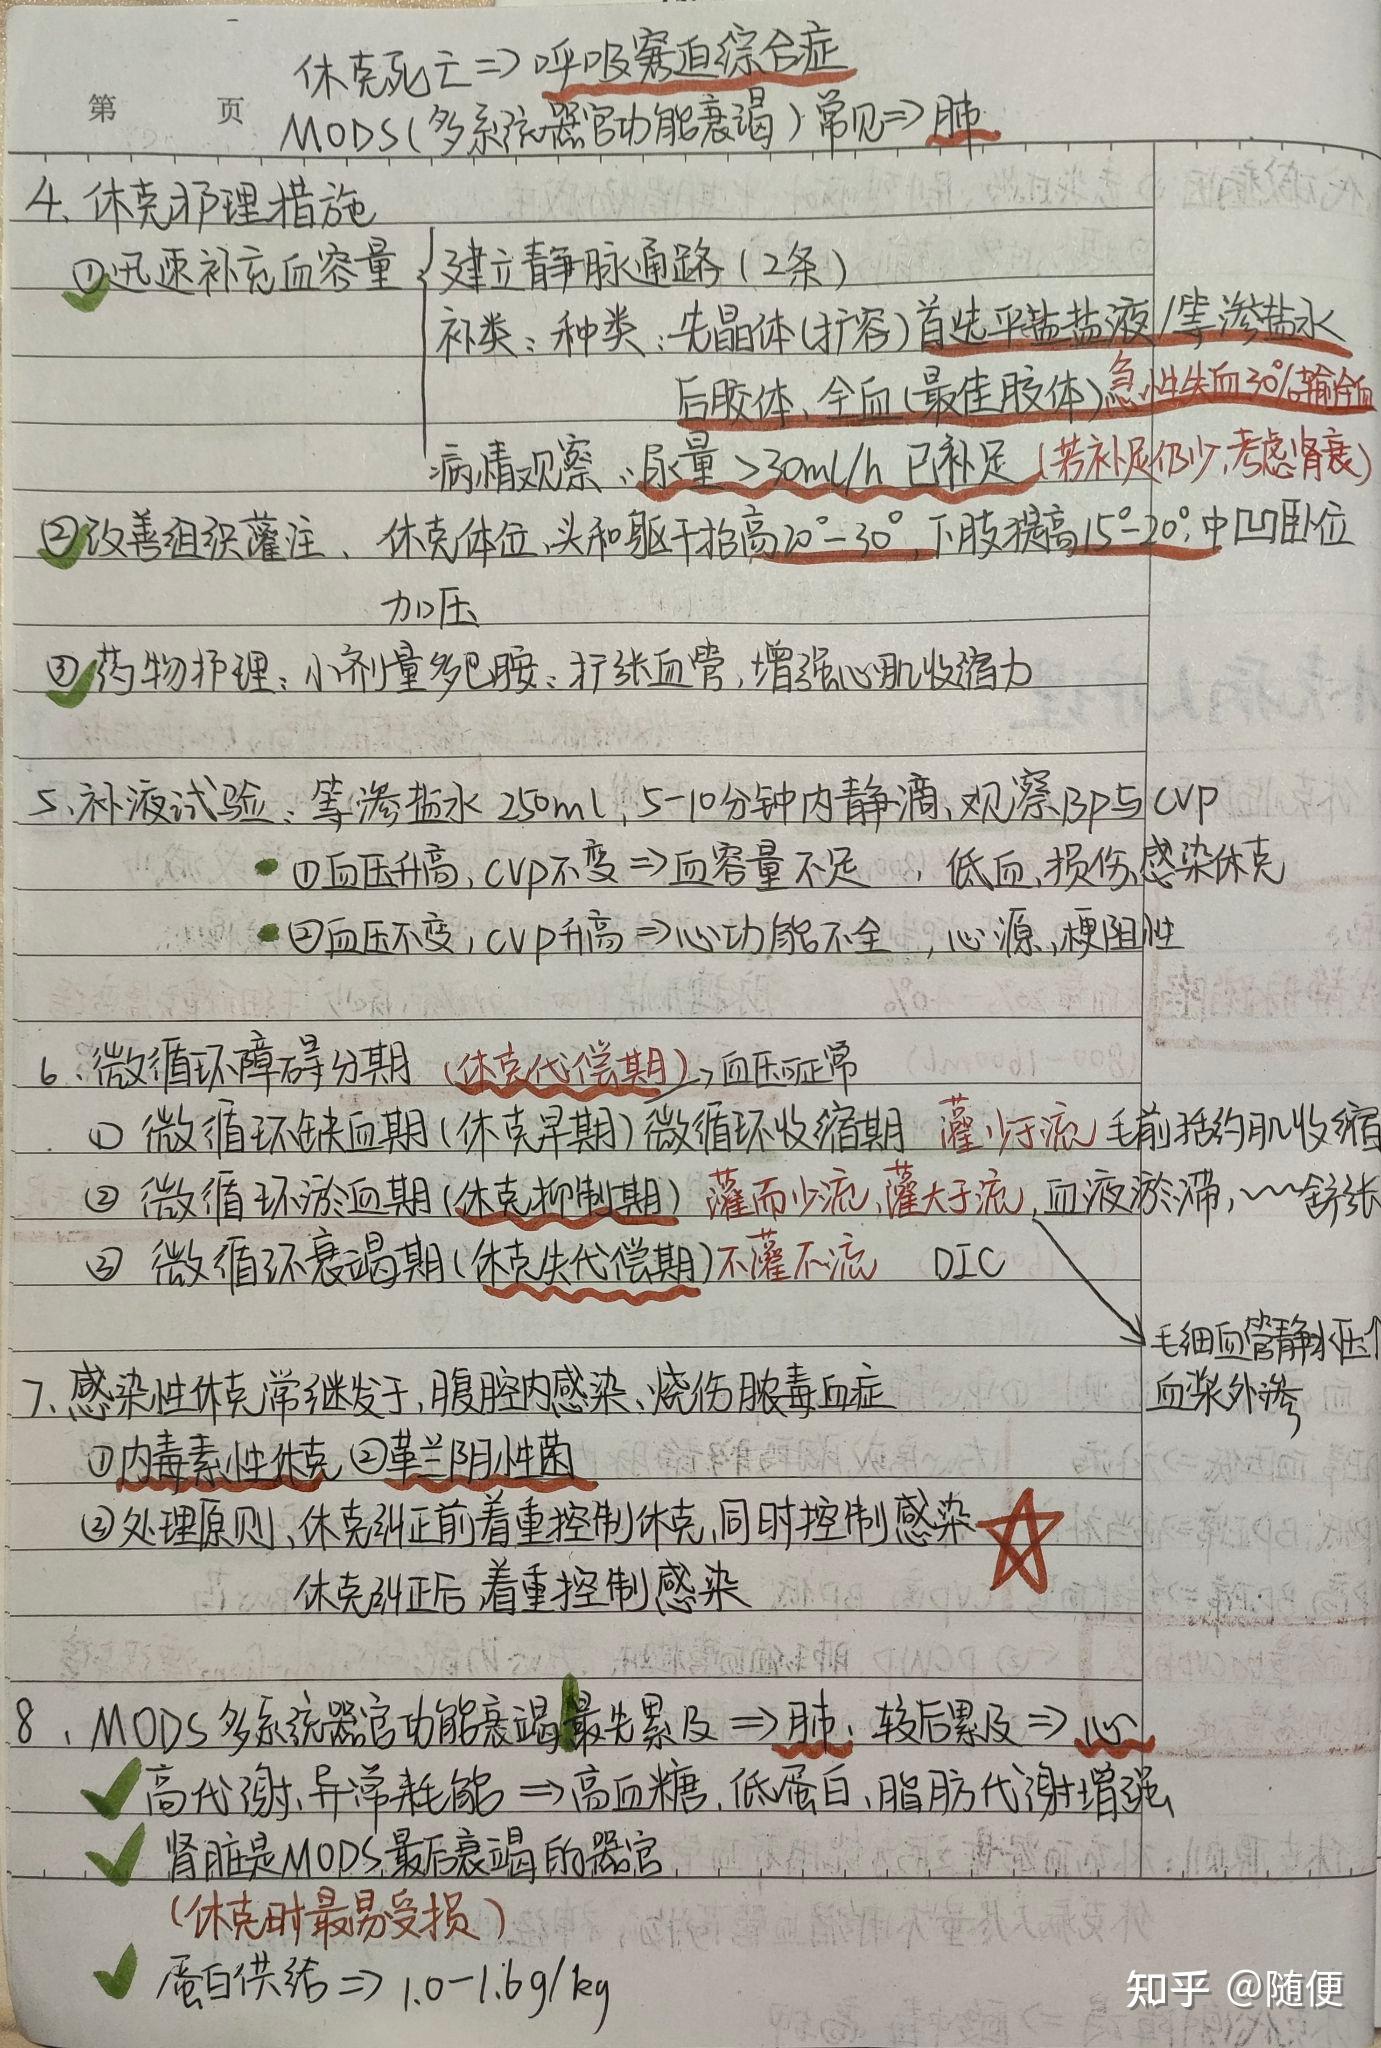 休克死亡⇒呼吸窘迫综合症
第 页
MODS(多系统器官功能衰竭)常见⇒肺
4、休克护理措施
①迅速补充血容量 建立静脉通路(2条)
补类:种类:先晶体(扩容)首选平盐盐液/等渗盐水
后胶体、全血(最佳胶体)急性失血30%输全血
病情观察:尿量>30ml/h 已补足(若补足仍少,考虑肾衰)
②改善组织灌注、休克体位、头和躯干抬高20°-30°,下肢提高15°-20°,中凹卧位
加压
③药物护理:小剂量多巴胺:扩张血管,增强心肌收缩力
5、补液试验:等渗盐水250ml,5-10分钟内静滴,观察BP与CVP
①血压升高,CVP不变⇒血容量不足,低血、损伤、感染休克
②血压不变,CVP升高⇒心功能不全,心源、梗阻性
6、微循环障碍分期(休克代偿期)→血压可正常
① 微循环缺血期(休克早期)微循环收缩期 灌少于流 毛前括约肌收缩
② 微循环淤血期(休克抑制期)灌而少流,灌大于流,血液淤滞,~~舒张
③ 微循环衰竭期(休克失代偿期)不灌不流 DIC
毛细血管静水压↑
血浆外渗
7、感染性休克常继发于,腹腔内感染、烧伤脓毒血症
①内毒素性休克 ②革兰阴性菌
③处理原则、休克纠正前着重控制休克,同时控制感染
休克纠正后,着重控制感染
8、MODS多系统器官功能衰竭最先累及⇒肺,较后累及⇒心
高代谢、异常耗能⇒高血糖、低蛋白、脂肪代谢增强
肾脏是MODS最后衰竭的器官
(休克时最易受损)
蛋白供给⇒1.0-1.6g/kg
知乎 @随便